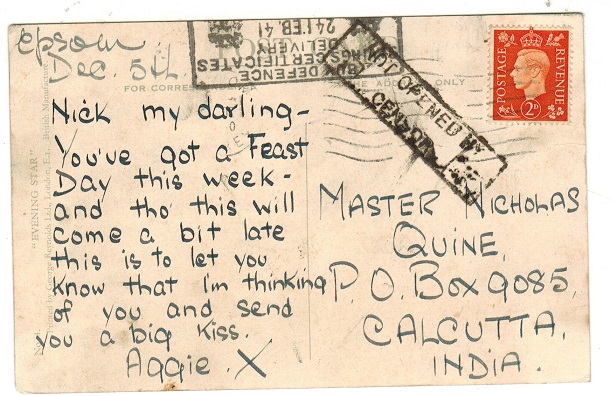 Epsom
Dec. 5th.
DEFENCE
SAVINGS CERTIFICATES
DELIVERY
24 FEB. 41
NOT OPENED BY
CENSOR
POSTAGE
REVENUE
2D
FOR CORRES
ADD
ONLY
Nick my darling -
You've got a Feast
Day this week -
and tho' this will
come a bit late
this is to let you
know that I'm thinking
of you and send
you a big kiss.
Aggie. X
MASTER NICHOLAS
QUINE,
P.O. Box 9085,
CALCUTTA,
INDIA.
"EVENING STAR"
London, E.1. British Manufacture